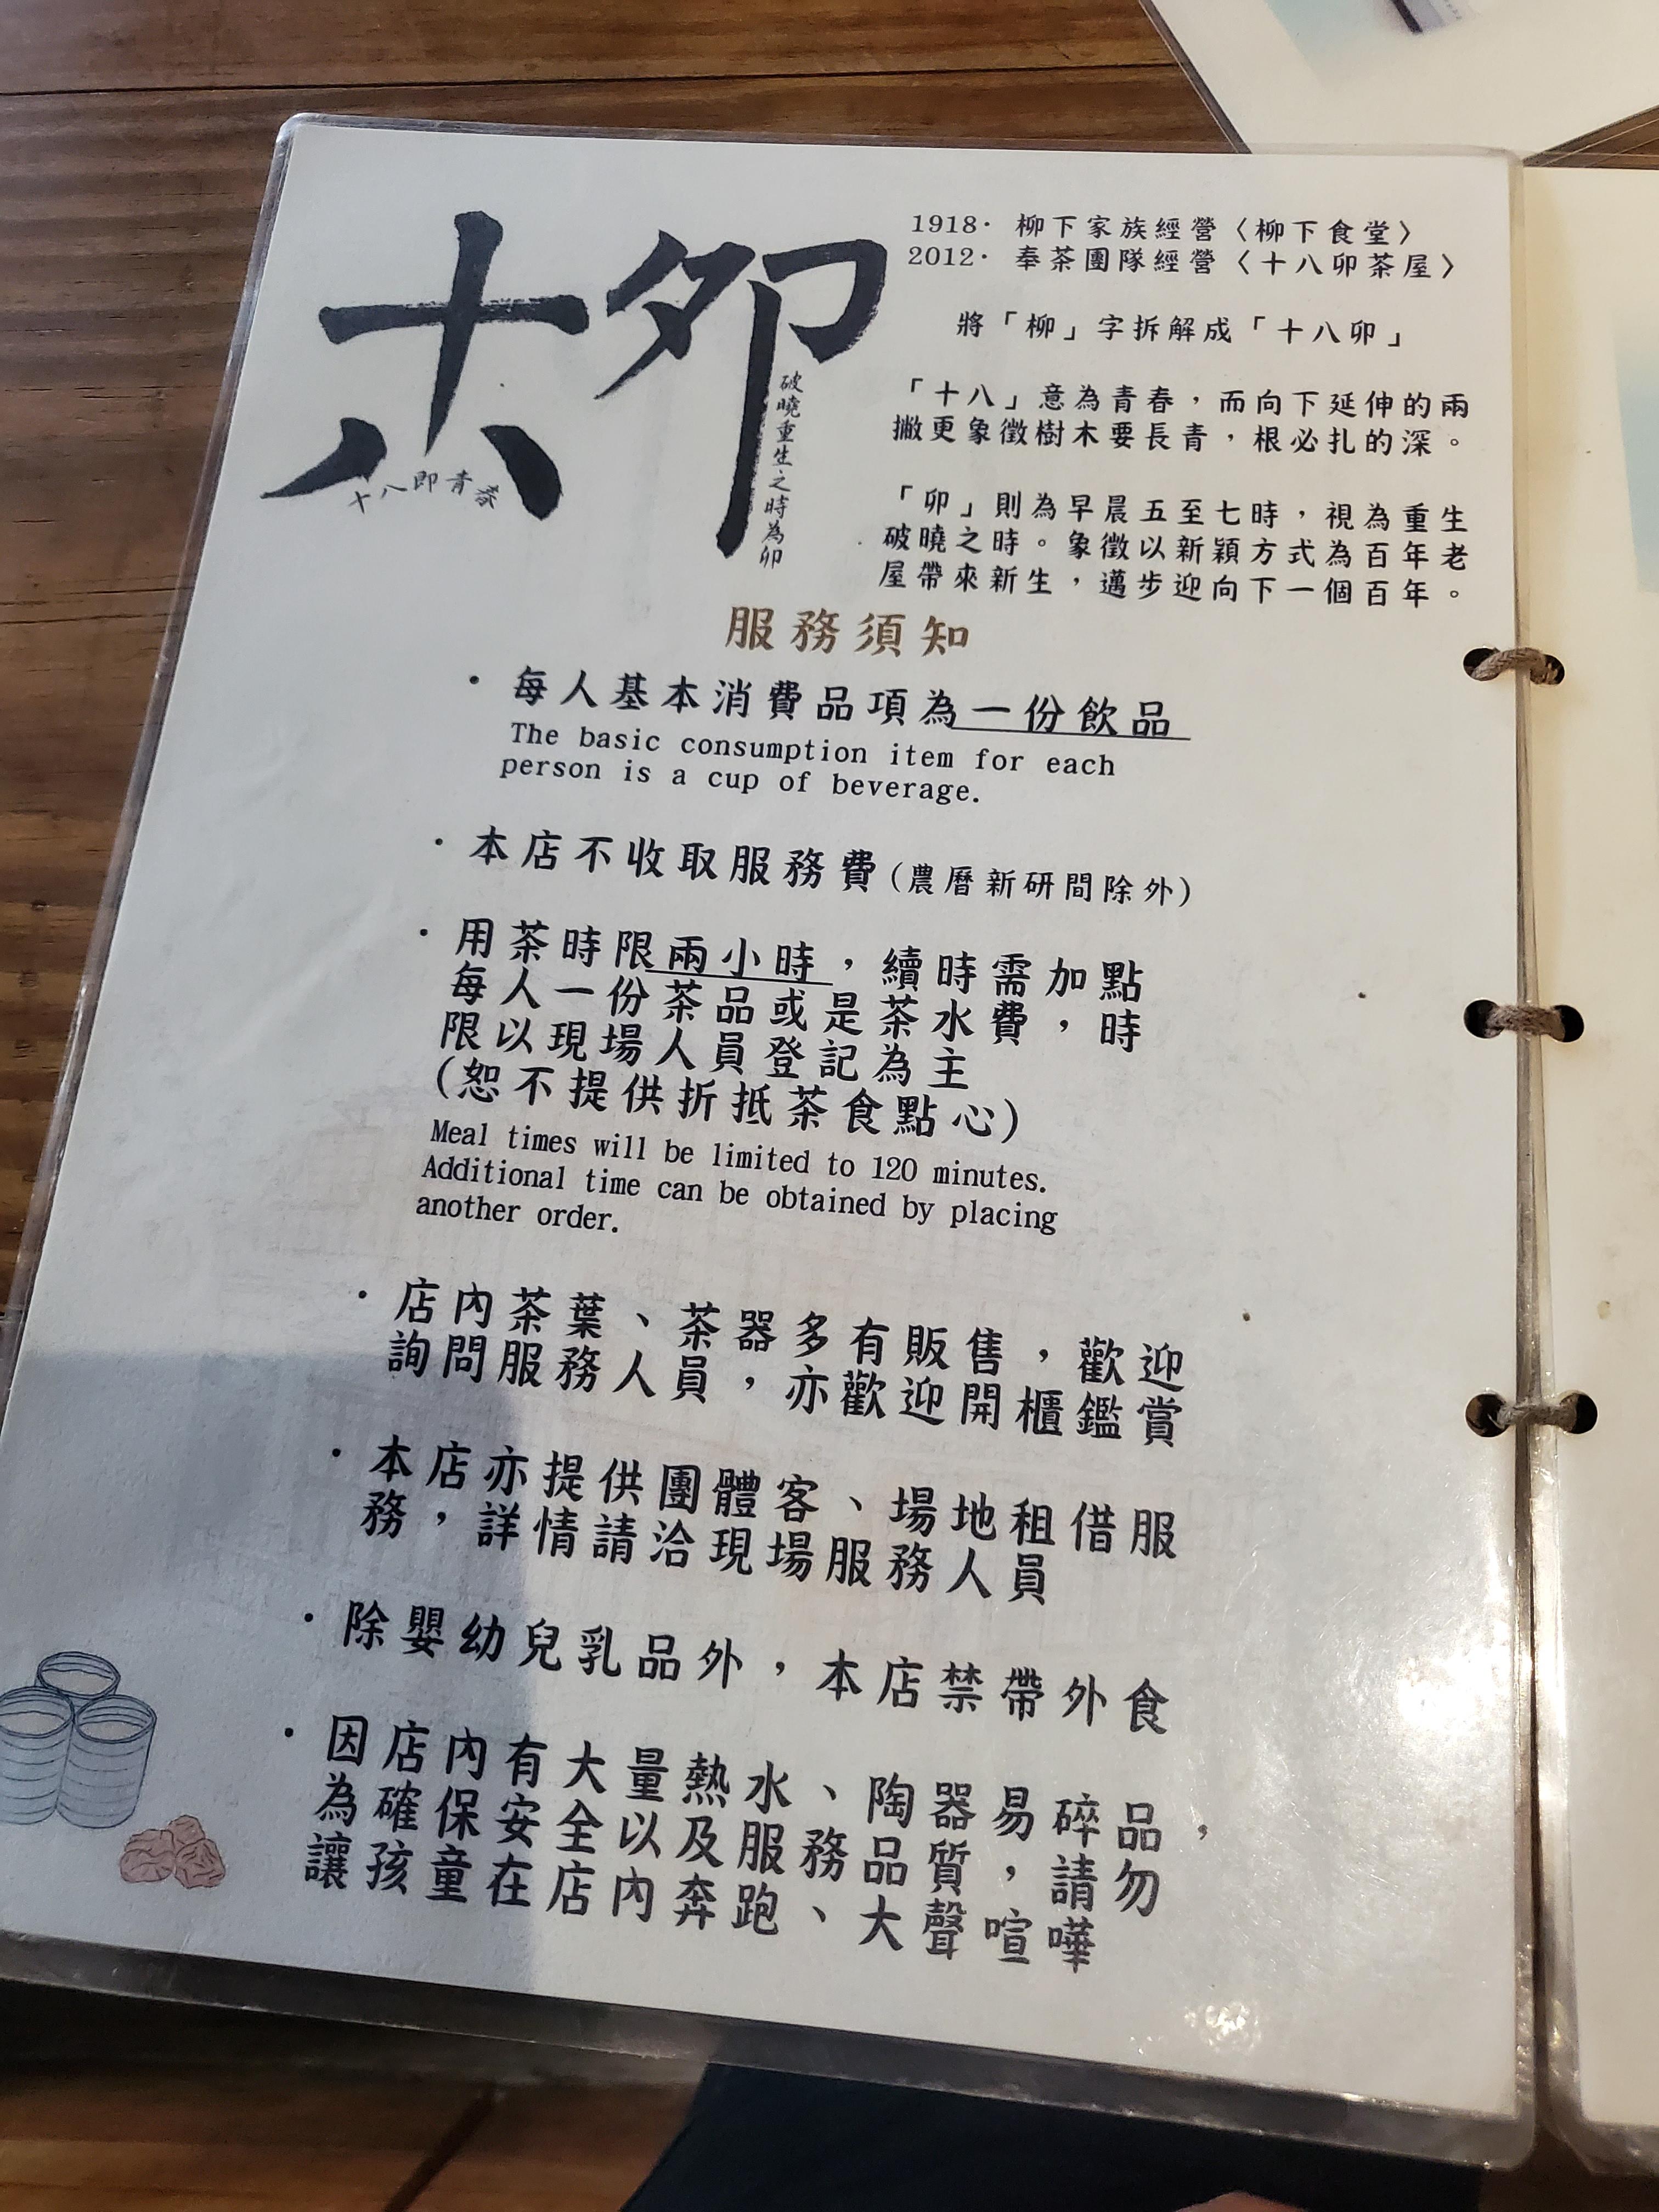 十八卯
十八即青春
破曉重生之時為卯
1918· 柳下家族經營〈柳下食堂〉
2012· 奉茶團隊經營〈十八卯茶屋〉
將「柳」字拆解成「十八卯」
「十八」意為青春，而向下延伸的兩
撇更象徵樹木要長青，根必扎的深。
「卯」則為早晨五至七時，視為重生
破曉之時。象徵以新穎方式為百年老
屋帶來新生，邁步迎向下一個百年。
服務須知
· 每人基本消費品項為一份飲品
The basic consumption item for each
person is a cup of beverage.
· 本店不收取服務費(農曆新研間除外)
· 用茶時限兩小時，續時需加點
每人一份茶品或是茶水費，時
限以現場人員登記為主
(恕不提供折抵茶食點心)
Meal times will be limited to 120 minutes.
Additional time can be obtained by placing
another order.
· 店內茶葉、茶器多有販售，歡迎
詢問服務人員，亦歡迎開櫃鑑賞
· 本店亦提供團體客、場地租借服
務，詳情請洽現場服務人員
· 除嬰幼兒乳品外，本店禁帶外食
· 因店內有大量熱水、陶器易碎品，
為確保安全以及服務品質，請勿
讓孩童在店內奔跑、大聲喧嘩